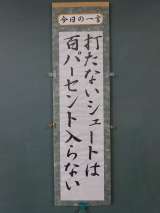 今日の一言
打たないシュートは
百パーセント入らない